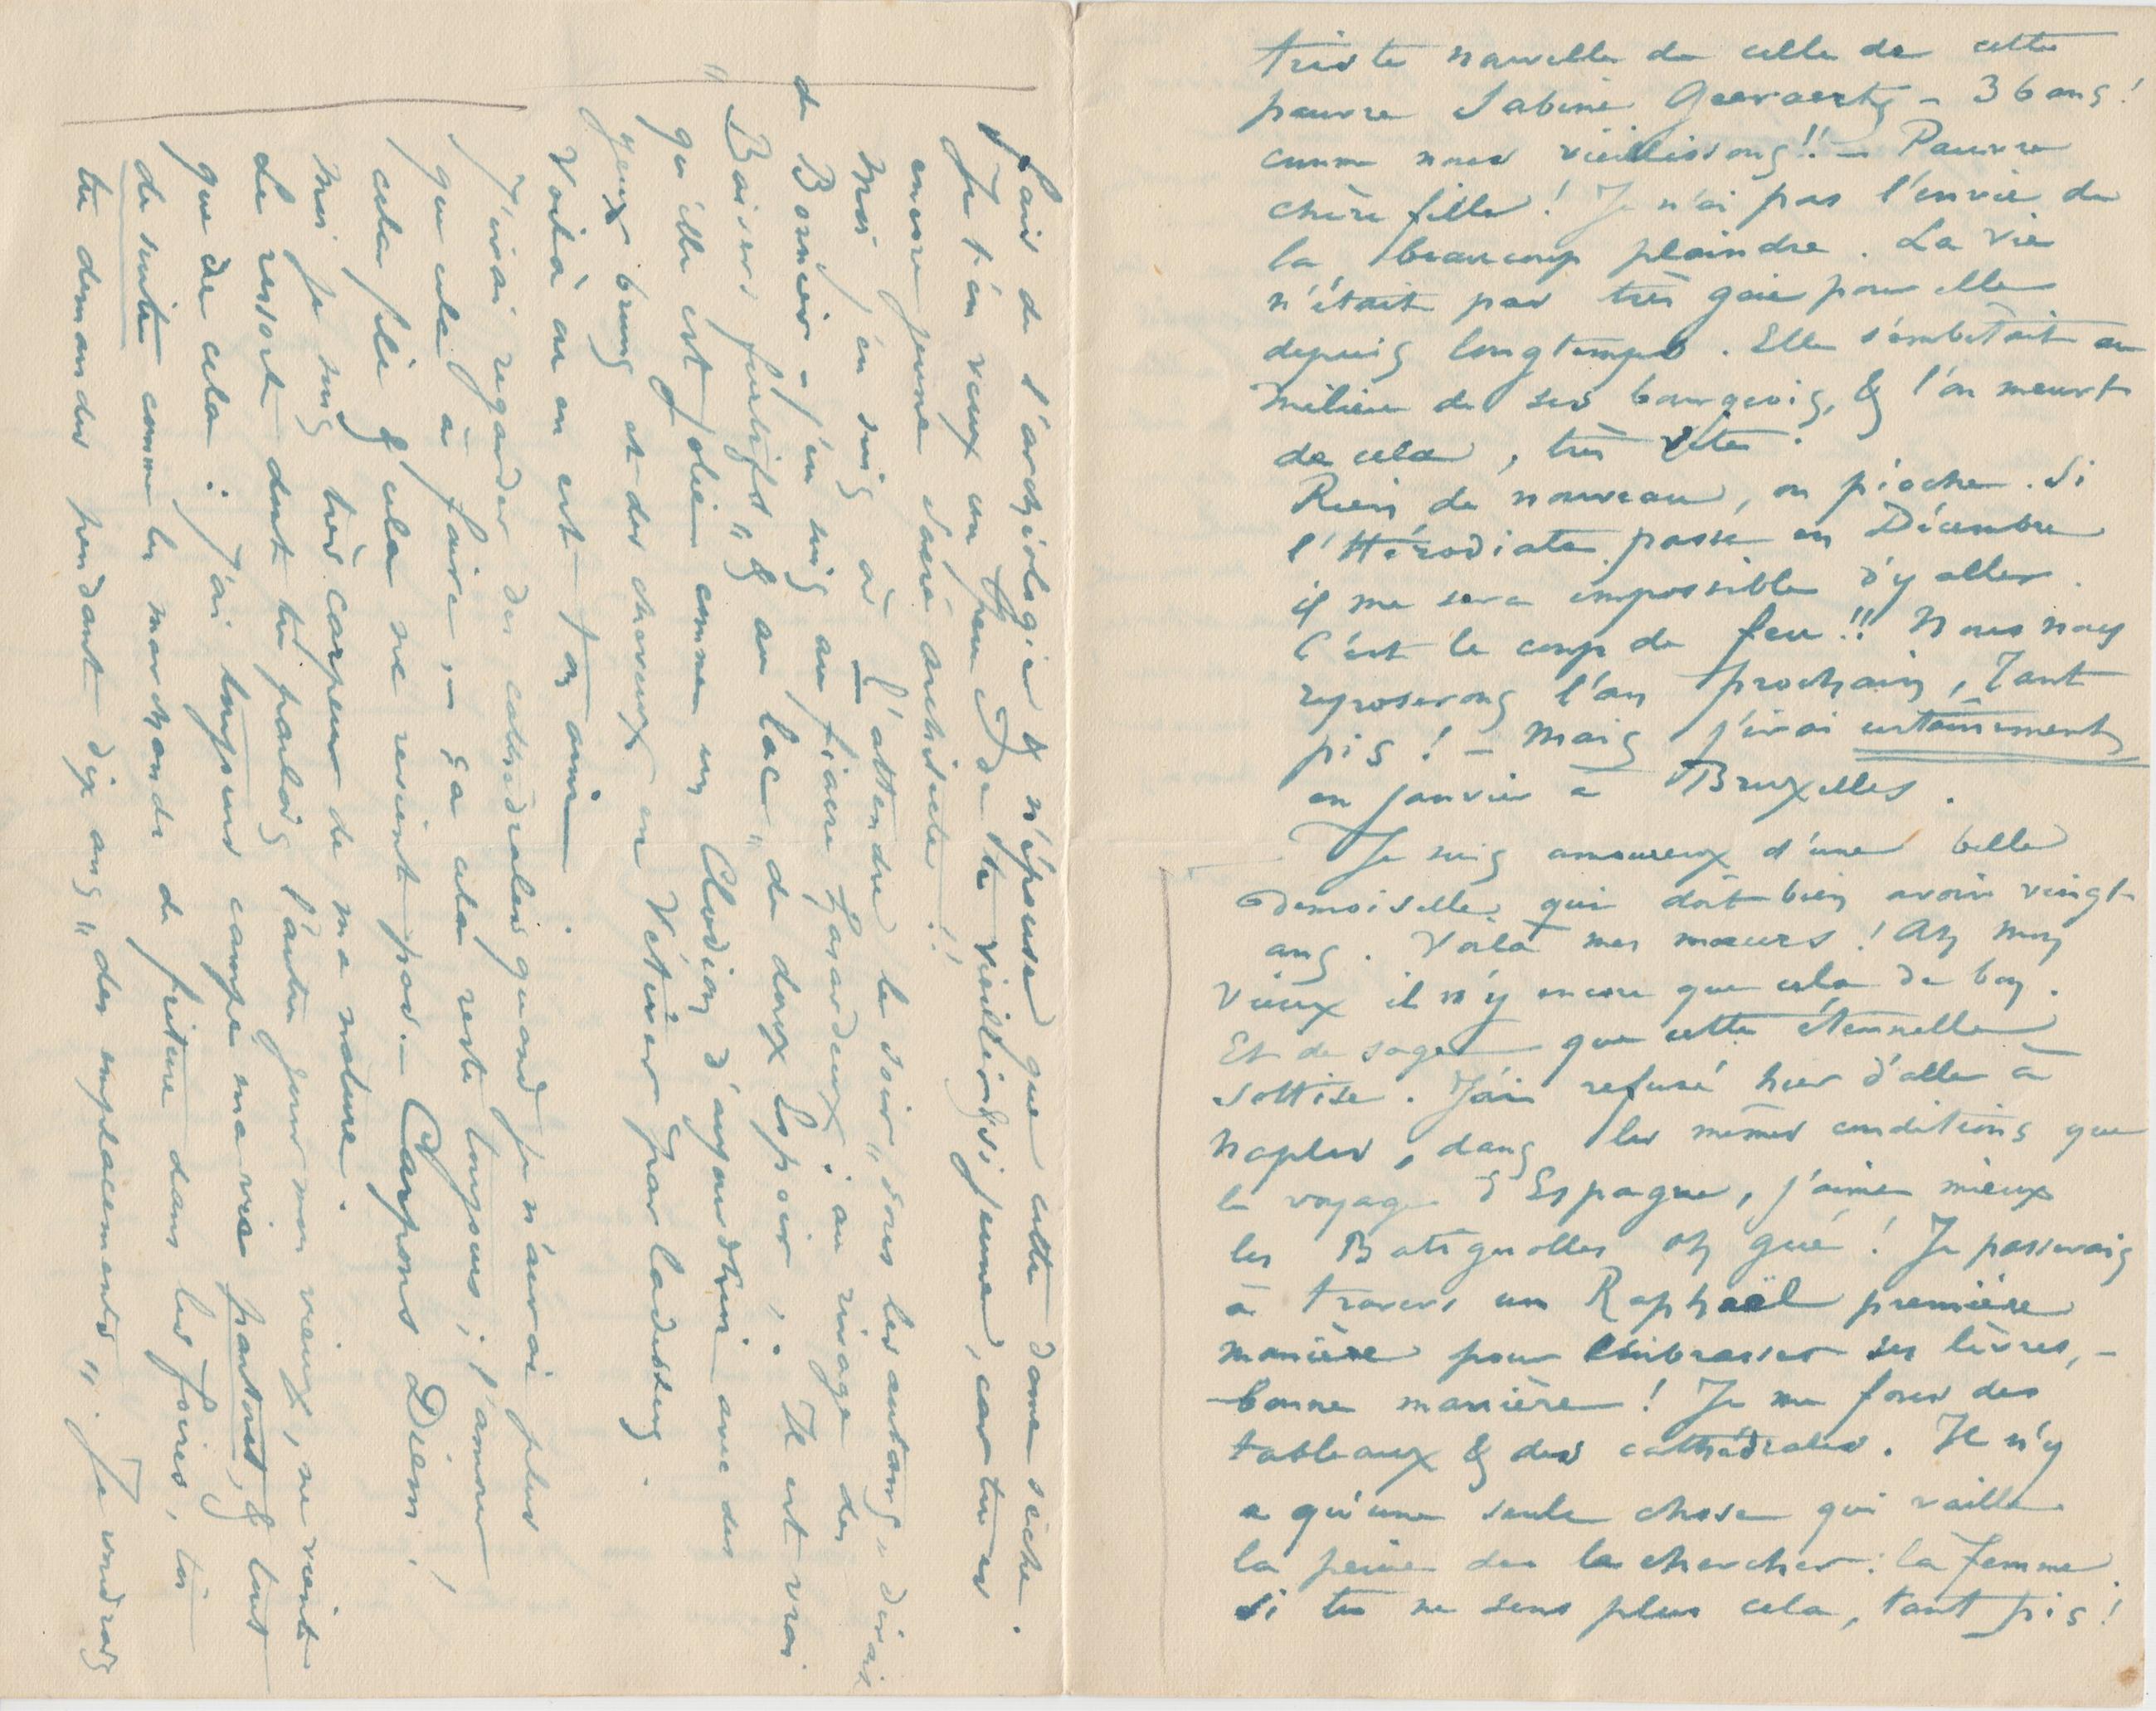 triste nouvelle de celle de cette
pauvre Sabine Geevaerts – 36 ans!
comme nous vieillissons!! – Pauvre
chère fille! Je n'ai pas l'envie de
la beaucoup plaindre. La vie
n'était pas très gaie pour elle
depuis longtemps. Elle s'embêtait au
milieu de ses bourgeois, & l'on meurt
de cela, très vite.
Rien de nouveau, on pioche. Si
l'Hérodiate passe en Décembre
il me sera impossible d'y aller.
C'est le coup de feu!! Nous nous
reposerons l'an prochain, Tant
pis! – Mais j'irai certainement
en janvier à Bruxelles.
Je suis amoureux d'une belle
Demoiselle qui doit bien avoir vingt
ans. Voilà mes mœurs! Ah mon
vieux il n'y encore que cela de bon.
Et de sage que cette éternelle
sottise. J'ai refusé hier d'aller à
Naples, dans les mêmes conditions que
le voyage d'Espagne, j'aime mieux
les Batignolles oh gué! Je passerais
à travers un Raphaël première
manière pour embrasser ses lèvres, –
bonne manière! Je me fous des
tableaux & des cathédrales. Il n'y
a qu'une seule chose qui vaille
la peine de la chercher: la femme.
Si tu ne sens plus cela, tant pis!
Fais de l'archéologie & n'épouse que cette dame sèche.
Je t'en veux un peu de te vieillir si jeune, car tu es
encore jeune sacré architecte!!
Moi j'en suis à l'attendre le soir, "sous les autans" dirait
de Bornier – j'en suis au fiacre hasardeux; au rivage des
"Baisers furtifs" & au lac "de doux Espoir". Il est vrai
qu'elle est jolie comme un Clodion d'aujourd'hui avec des
yeux bruns et des cheveux en Vétiver par là-dessus.
Voilà où en est ton ami
J'irai regarder des cathédrales quand je n'aurai plus
que cela à faire, – ça cela reste toujours; l'amour,
cela file & cela ne revient pas. – Carpons Diem!
Moi je suis très carpeur de ma nature.
Le ressort dont tu parlais l'autre jour mon vieux, ne vient
que de cela: J'ai toujours campé ma vie partout, & tout
de suite comme les marchands de friture dans les foires, toi
tu demandes pendant dix ans "des emplacements". Je voudrais